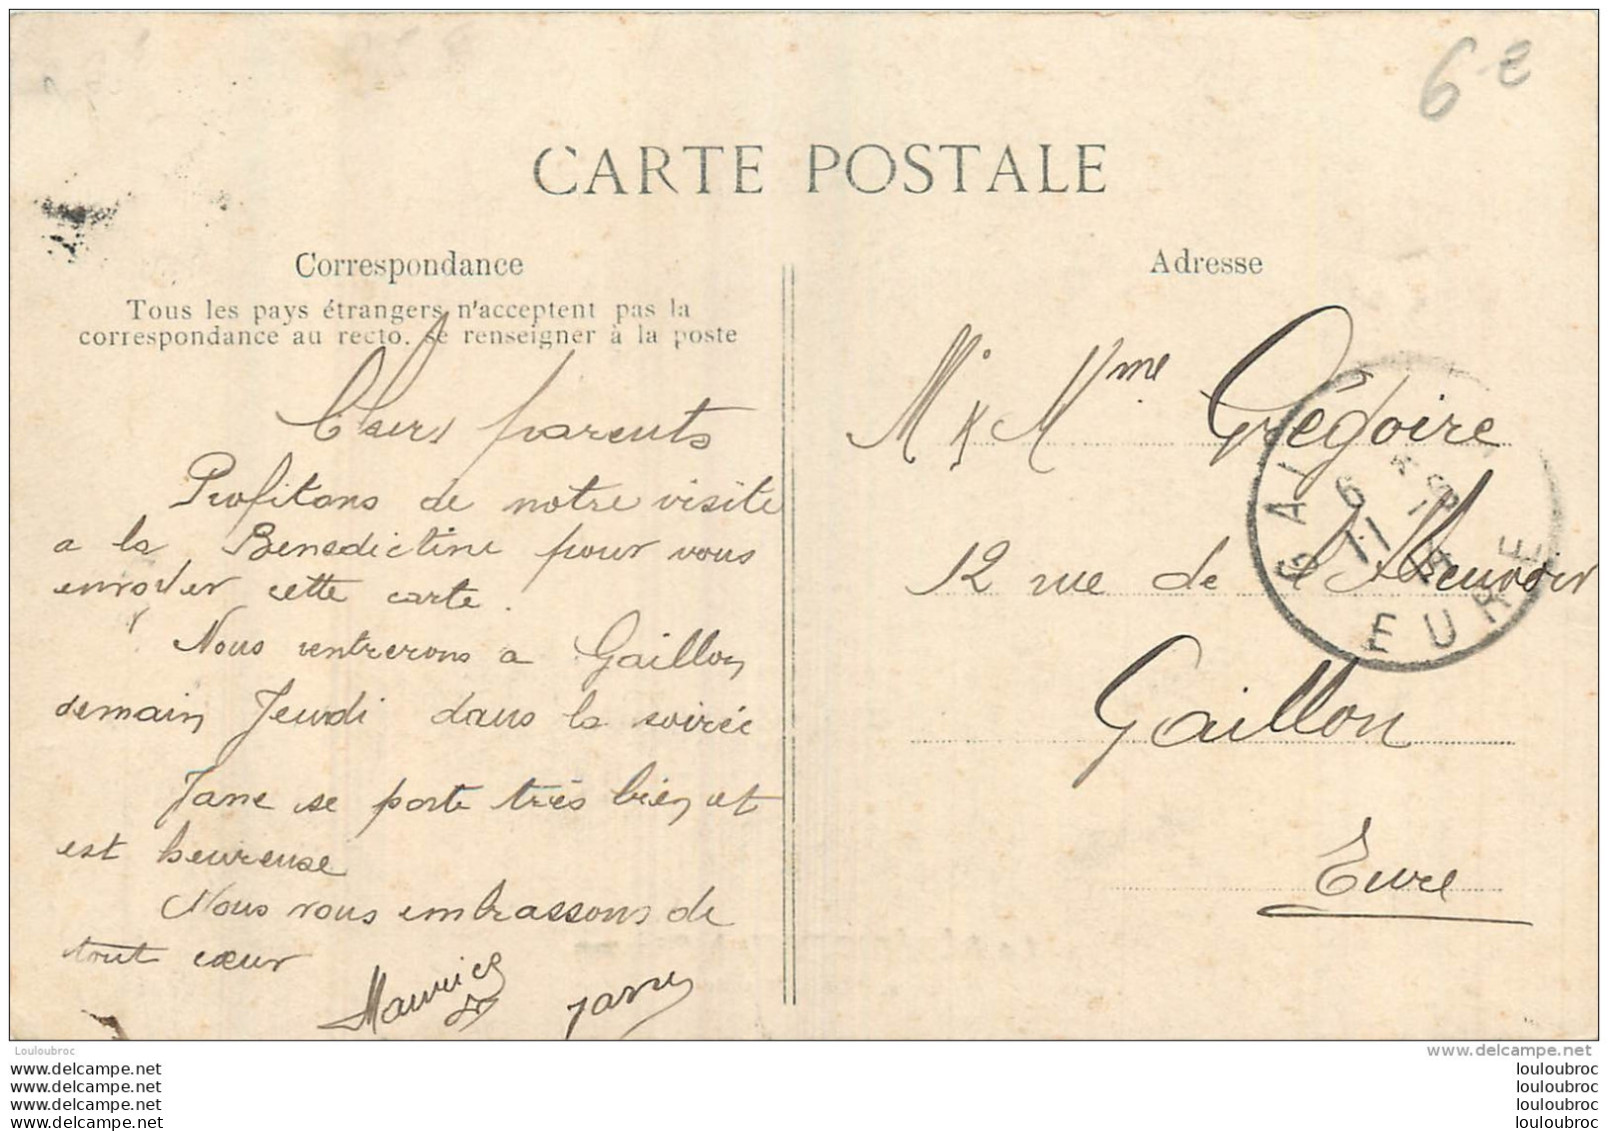 6 e
CARTE POSTALE
Correspondance
Tous les pays étrangers n'acceptent pas la
correspondance au recto. se renseigner à la poste
Chers parents
Profitons de notre visite
a la Benedictine pour vous
envoyer cette carte.
Nous rentrerons a Gaillon
demain Jeudi dans la soirée
Jane se porte très bien et
est heureuse
Nous vous embrassons de
tout cœur
Maurice et Jane
Adresse
Mr & Mme Grégoire
12 rue de l'Abreuvoir
Gaillon
Eure
GAI
6
11
EURE
Louloubroc
www.delcampe.net
www.delcampe.net
www.delcampe.net
www.delcampe.net
www.delcampe.net
louloubroc
louloubroc
louloubroc
louloubroc